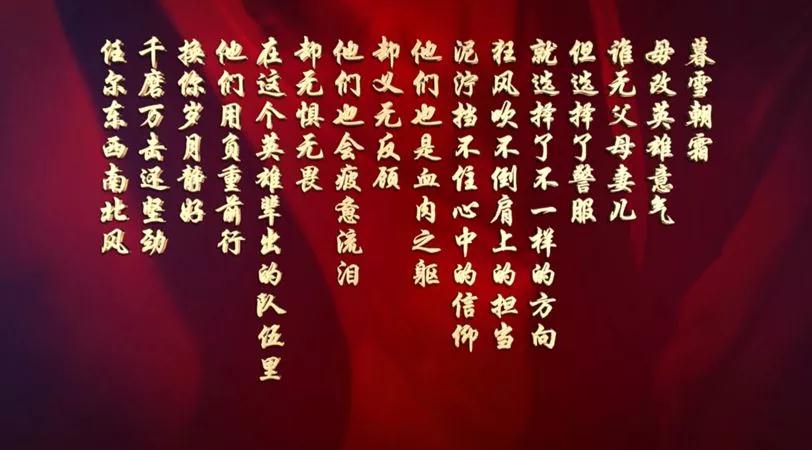 暮雪朝霜
毋改英雄意气
谁无父母妻儿
但选择了警服
就选择了不一样的方向
狂风吹不倒肩上的担当
泥泞挡不住心中的信仰
他们也是血肉之躯
却义无反顾
他们也会疲惫流泪
却无惧无畏
在这个英雄辈出的队伍里
他们用负重前行
换你岁月静好
千磨万击还坚劲
任尔东西南北风